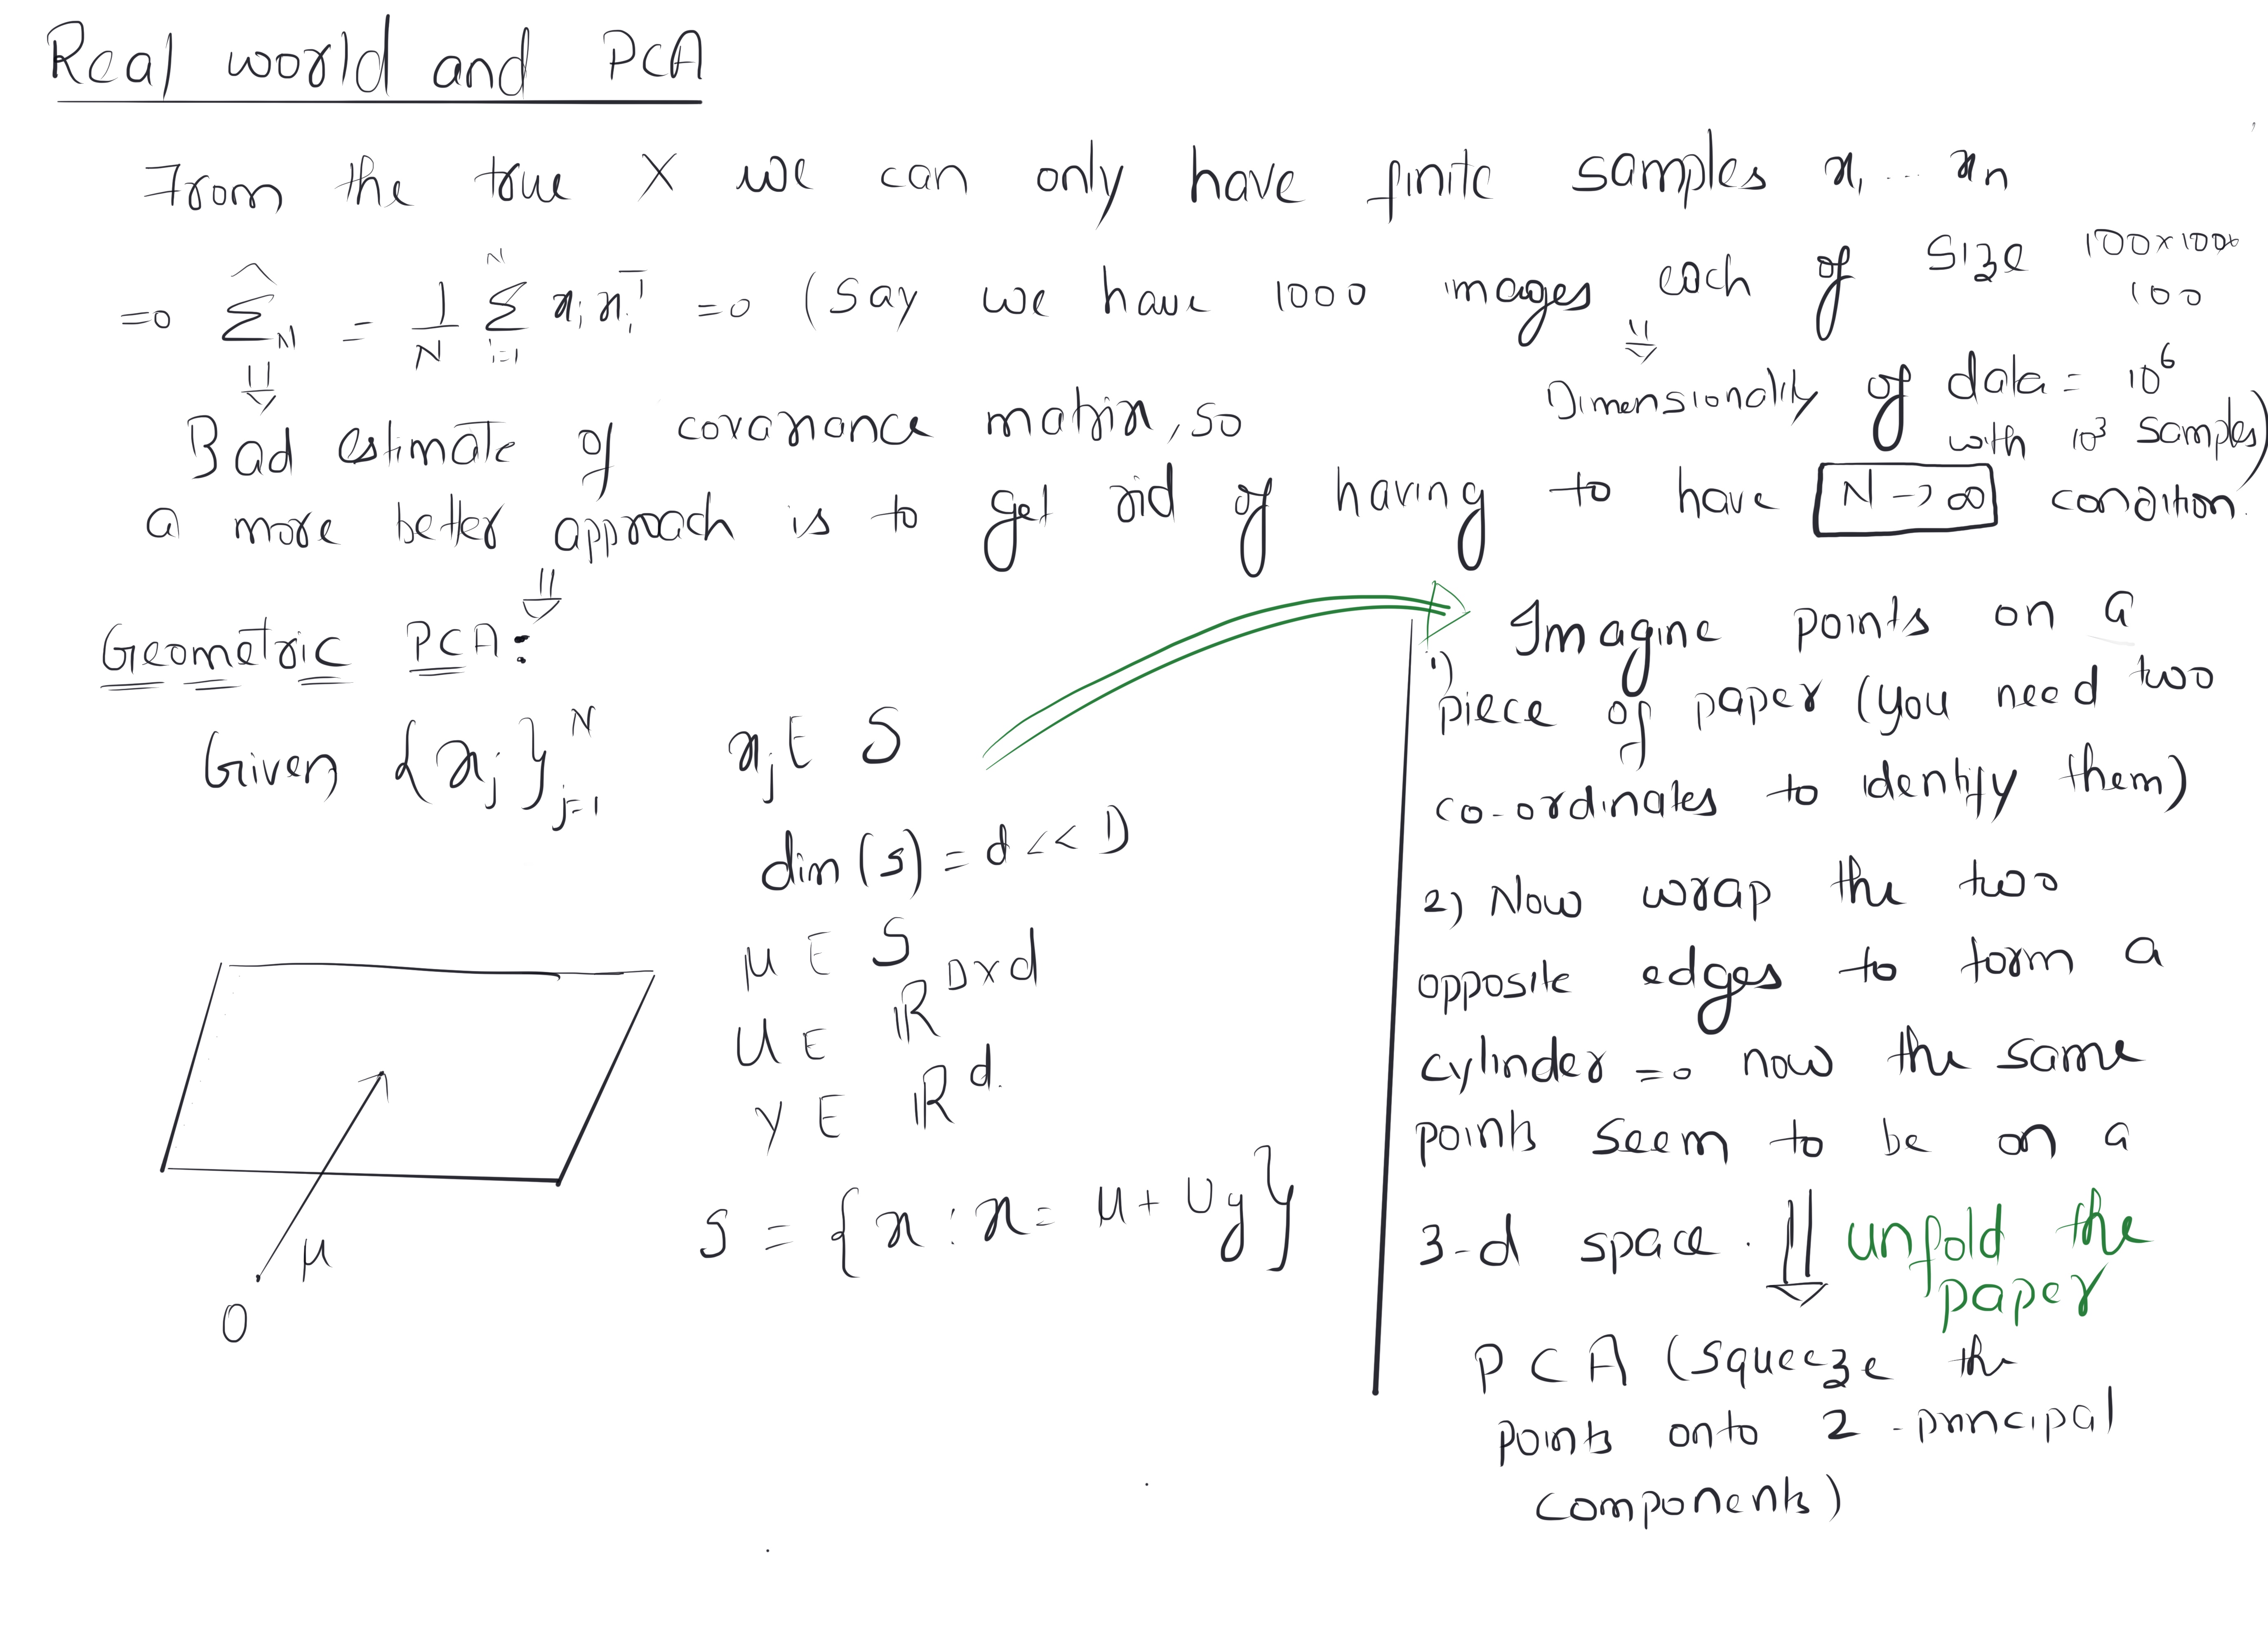 Real world and PCA
From the true X we can only have finite samples x₁ ... xₙ
⇒ Σ̂_N = 1/N Σ_{i=1}^{N} xᵢ xᵢᵀ ⇒ (say we have 1000 images each of size 100x100x
100
⇓ ⇓ Dimensionality of data = 10⁶
with 10³ samples)
Bad estimate of covariance matrix, so
a more better approach is to get rid of having to have N → ∞ condition.
⇓
Geometric PCA:
Given {xⱼ}_{j=1}^{N} xⱼ ∈ S
dim (s) = d << D
μ ∈ S
U ∈ ℝ^{D×d}
y ∈ ℝ^d.
S = {x : x = μ + Uy}
μ
O
1) Imagine points on a
piece of paper (you need two
co-ordinates to identify them)
2) Now wrap the two
opposite edges to form a
cylinder ⇒ now the same
points seem to be on a
3-d space. ⇓ unfold the
paper
PCA (squeeze the
points onto 2 - principal
components)